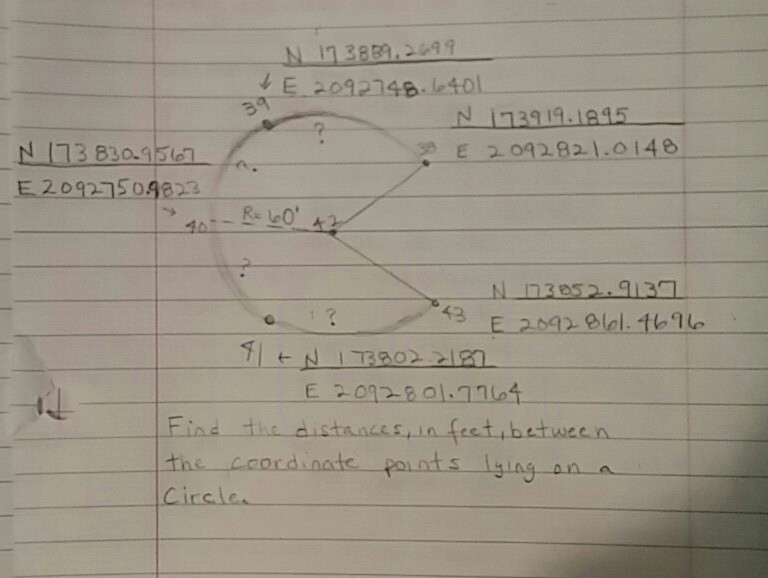 N 173889.2699
E 2092748.6401
39
?
N 173919.1895
E 2092821.0148
38
N 173830.9567
E 2092750.9823
40 R=60' 42
?
N 173852.9137
E 2092861.4696
43
?
41 ← N 173802.2187
E 2092801.7764
Find the distances, in feet, between
the coordinate points lying on a
Circle.